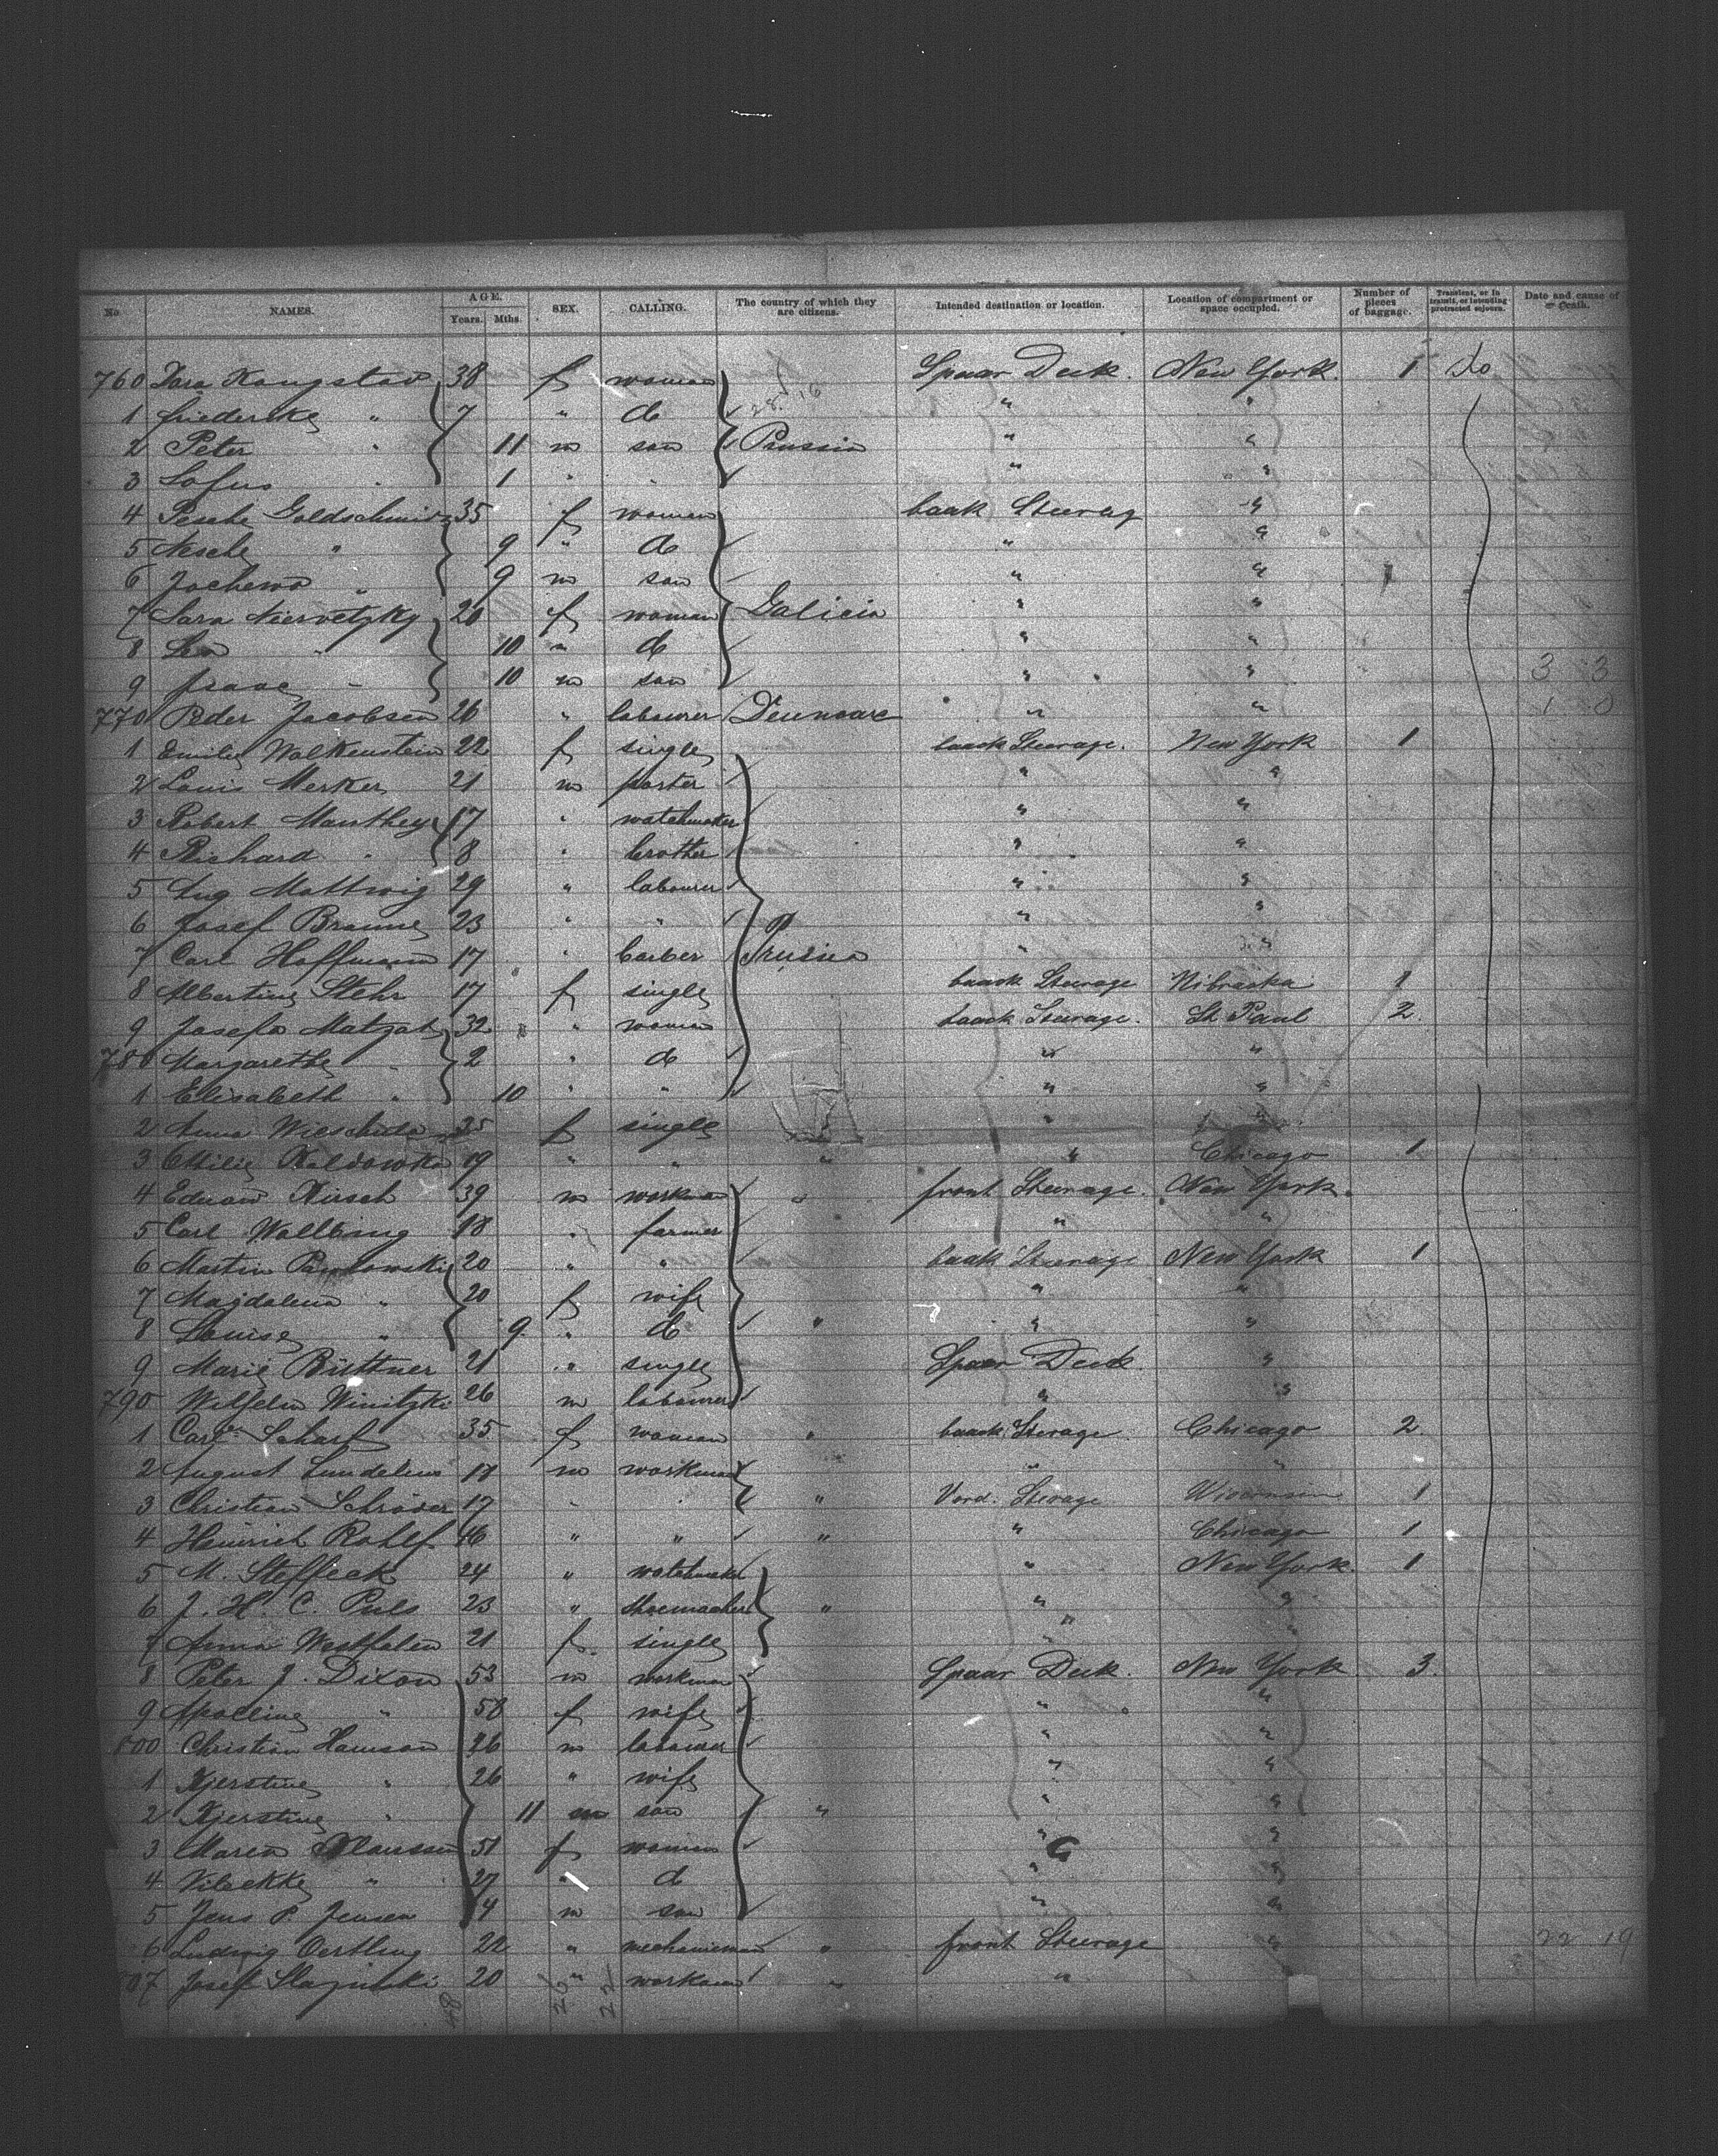 No. NAMES. AGE. Years. Mths. SEX. CALLING. The country of which they are citizens. Intended destination or location. Location of compartment or space occupied. Number of pieces of baggage. Transient, or in transit, or intending protracted sojourn. Date and cause of death.
760 Kangstad 38 f woman Spaar Deck. New York. 1 do
1 Friederike " 7 " do " "
2 Peter " 11 m son Prussia " "
3 Sofus " 1 " " " "
4 Pesche Goldschmidt 35 f woman baak Steerag "
5 Nesche " 9 " do " "
6 " 9 m son " "
7 Sara 20 f woman Galicia " "
8 Lea " 10 " do " "
9 Isaac " 10 m son " " 3 3
770 Peder Jacobsen 26 " labourer Dennmarc " " 1 0
1 Emilie Walkenstein 22 f single baack Steerage. New York 1
2 Louis Merker 21 m porter " "
3 Robert Manthey 17 " watchmaker " "
4 Richard " 8 " brother " "
5 Mattwig 29 " labourer " "
6 Josef Braune 23 " " " "
7 Carl Hoffmann 17 " barber Prussia " "
8 Albertine Stehr 17 f single baack Steerage Nibraska 1
9 Josefa 32 " woman baack Steerage. St. Paul 2
780 Margarethe " 2 " do " "
1 Elisabeth " 10 " " " "
2 Anna 35 f single " "
3 19 " " " " Chicago 1
4 Eduard Kirsch 39 m workman " front Steerage. New York.
5 Carl Wollbing 18 " farmer " "
6 Martin Pawlowski 20 " " baak Steerage New York 1
7 Magdalena " 20 f wife " "
8 Louise " 9 " do " " "
9 Marie Büttner 21 " single Spaar Deck "
790 Wilhelm Winitzki 26 m labourer " "
1 Scharf 35 f woman " baack Sterage Chicago 2
2 August 17 m workman " "
3 Christian Schröder 17 " " " Vord. Sterage Wisconsin 1
4 Heinrich Rohlf 16 " " " " Chicago 1
5 M. Steffeck 24 " watchmaker " New York. 1
6 J. H. C. Puls 23 " shoemacher " " "
7 Anna Westfalen 21 f single " "
8 Peter J. Dixon 53 m workman Spaar Deck. New York 3
9 " 58 f wife " "
800 Christian Hanson 26 m labourer " "
1 Kjerstine " 26 " wife " "
2 Kjerstine " 11 m son " " "
3 Maren 51 f woman " "
4 " 27 " d " "
5 Jens P. Jensen 4 m son " "
6 Ludwig Oertling 22 " mechanicman " front Steerage " 22 19
807 Josef 20 " workman " "
26 22